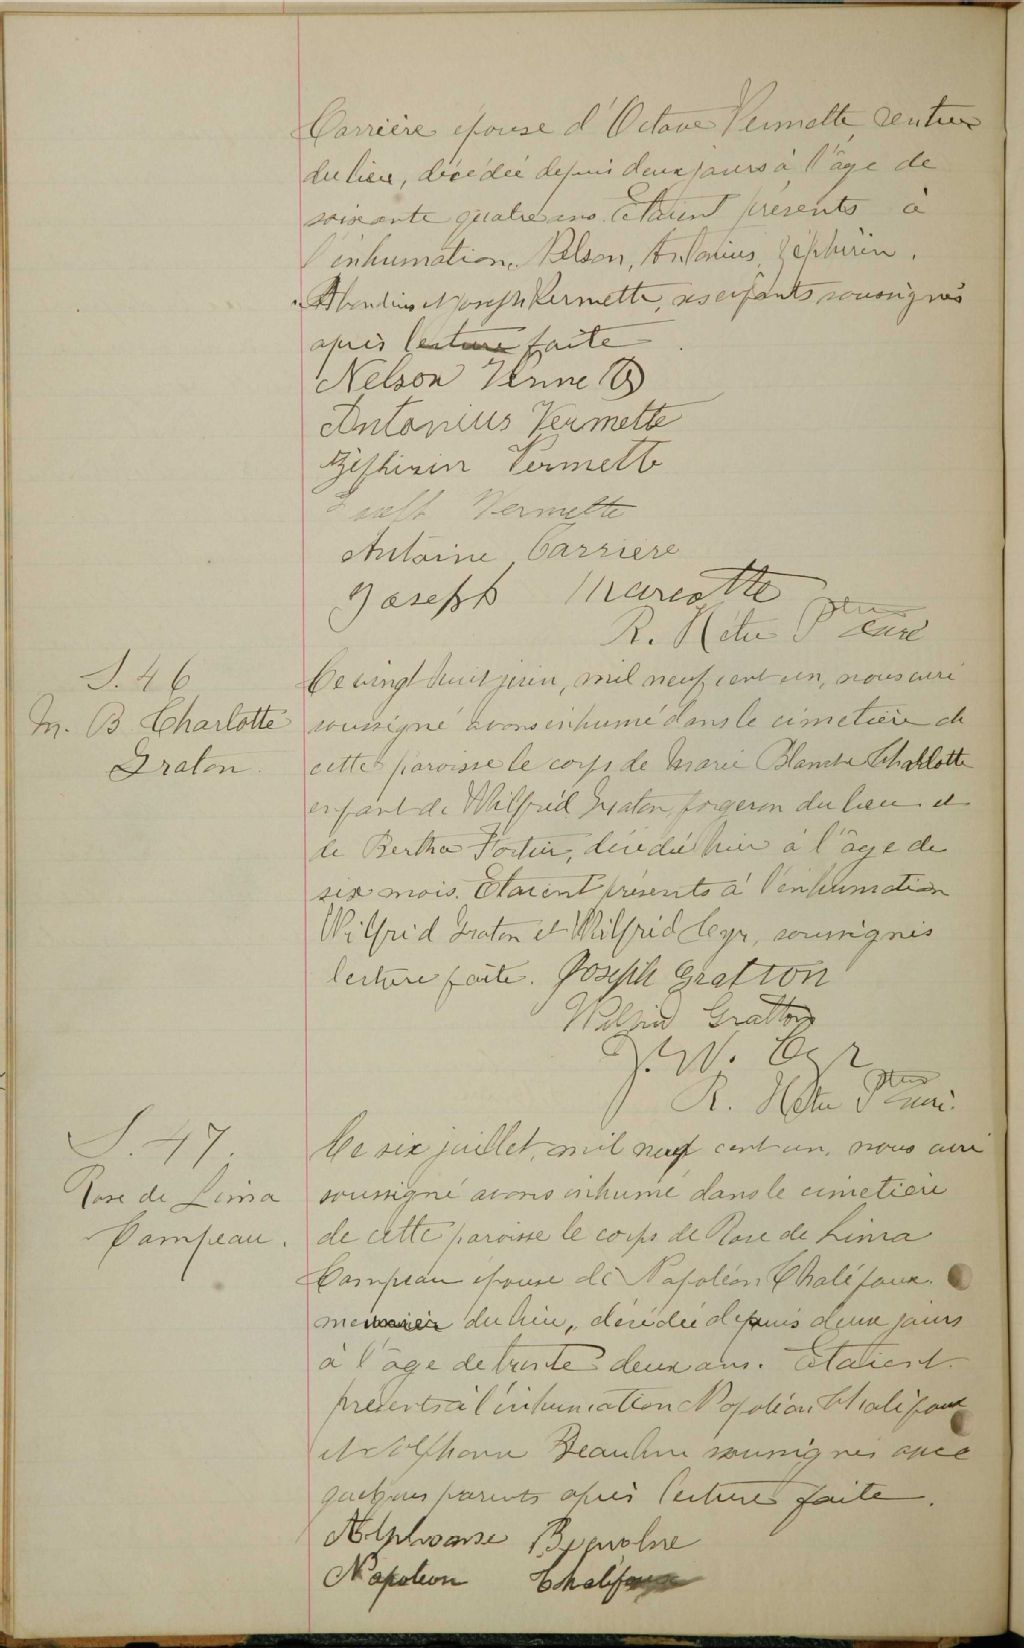 Carrière épouse d'Octave Vermette, rentier
du lieu, décédée depuis deux jours à l'âge de
soixante quatre ans. Etaient présents à
l'inhumation, Nelson, Antonius, Zéphirin,
Abondius et Joseph Vermette, ses enfants soussignés
après lecture faite
Nelson Vermette
Antonius Vermette
Zéphirin Vermette
Joseph Vermette
Antoine Carriere
Joseph Marcotte
R. Hétu Ptre Curé
S. 46
M. B Charlotte
Graton
Ce vingt huit juin, mil neuf cent un, nous curé
soussigné avons inhumé dans le cimetière de
cette paroisse le corps de Marie Blanche Charlotte
enfant de Wilfrid Graton, forgeron du lieu et
de Bertha Fortier, décédée hier à l'âge de
six mois. Etaient présents à l'inhumation
Wilfrid Graton et Wilfrid Cyr, soussignés
lecture faite. Joseph Gratton
Wilfrid Gratton
J. W. Cyr
R. Hétu Ptre Curé.
S. 47.
Rose de Lima
Campeau.
Ce six juillet, mil neuf cent un, nous curé
soussigné avons inhumé dans le cimetière
de cette paroisse le corps de Rose de Lima
Campeau épouse de Napoléon Chalifoux.
du lieu, décédée depuis deux jours
à l'âge de trente deux ans. Etaient
présents à l'inhumation Napoléon Chalifoux
et Alphonse soussignés avec
quelques parents après lecture faite.
Alphonse
Napoleon Chalifoux